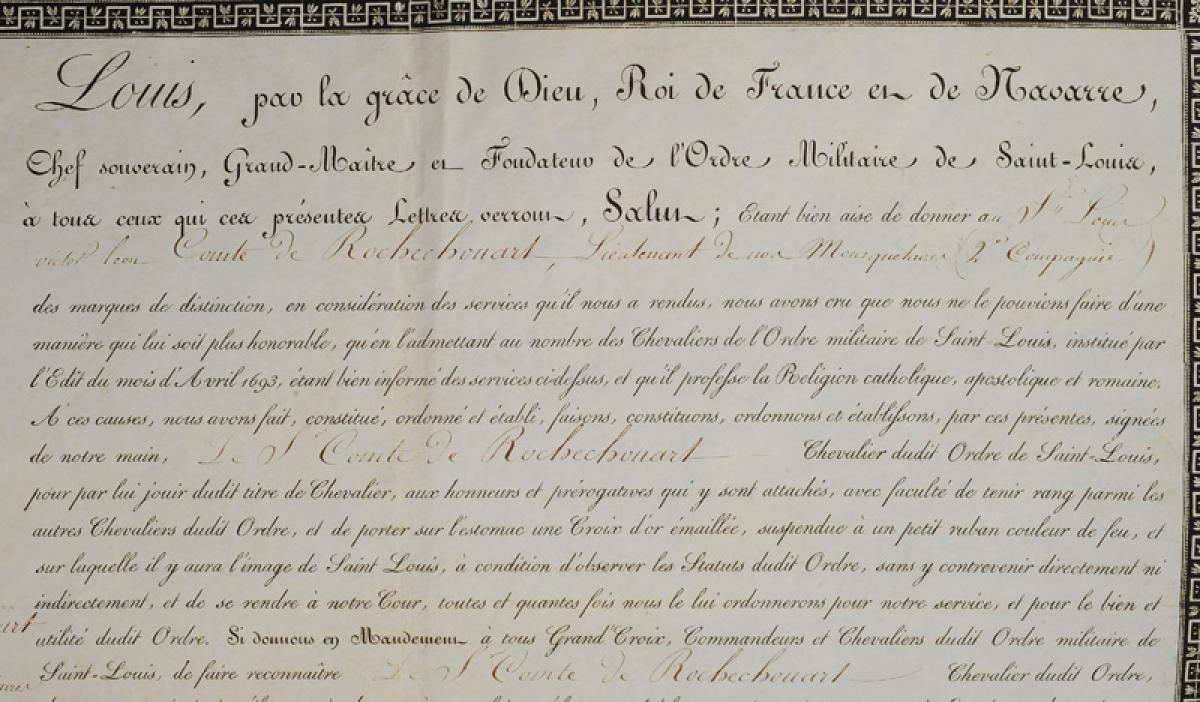 Louis, par la grâce de Dieu, Roi de France et de Navarre,
Chef souverain, Grand-Maître et Fondateur de l'Ordre Militaire de Saint-Louis,
à tous ceux qui ces présentes Lettres verront, Salut; Etant bien aise de donner au Sr. Louis
victor leon Comte de Rochechouart, Lieutenant de nos Mousquetaires (2e Compagnie)
des marques de distinction, en considération des services qu'il nous a rendus, nous avons cru que nous ne le pouvions faire d'une
manière qui lui soit plus honorable, qu'en l'admettant au nombre des Chevaliers de l'Ordre militaire de Saint-Louis, institué par
l'Edit du mois d'Avril 1693, étant bien informé des services ci-dessus, et qu'il professe la Religion catholique, apostolique et romaine.
A ces causes, nous avons fait, constitué, ordonné et établi, faisons, constituons, ordonnons et établissons, par ces présentes, signées
de notre main, Le Sr Comte de Rochechouart Chevalier dudit Ordre de Saint-Louis,
pour par lui jouir dudit titre de Chevalier, aux honneurs et prérogatives qui y sont attachés, avec faculté de tenir rang parmi les
autres Chevaliers dudit Ordre, et de porter sur l'estomac une Croix d'or émaillée, suspendue à un petit ruban couleur de feu, et
sur laquelle il y aura l'image de Saint Louis, à condition d'observer les Statuts dudit Ordre, sans y contrevenir directement ni
indirectement, et de se rendre à notre Cour, toutes et quantes fois nous le lui ordonnerons pour notre service, et pour le bien et
utilité dudit Ordre. Si donnons en Mandement à tous Grand'Croix, Commandeurs et Chevaliers dudit Ordre militaire de
Saint-Louis, de faire reconnaître Le Sr Comte de Rochechouart Chevalier dudit Ordre,